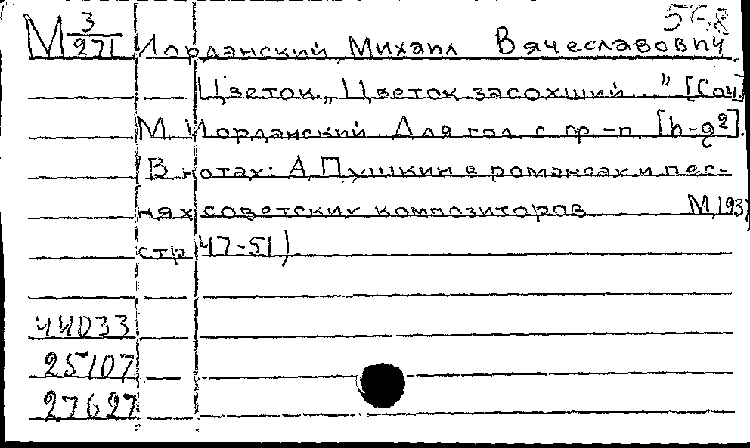 568
М 3/271 Иорданский, Михаил Вячеславович
Цветок „Цветок засохший..." [Соч.
М. Иорданский. Для гол. с ф-п. [h-g²].
(В нотах: А. Пушкин в романсах и пес-
нях советских композиторов. М, 193
стр. 47-51)
44033
25107
27627